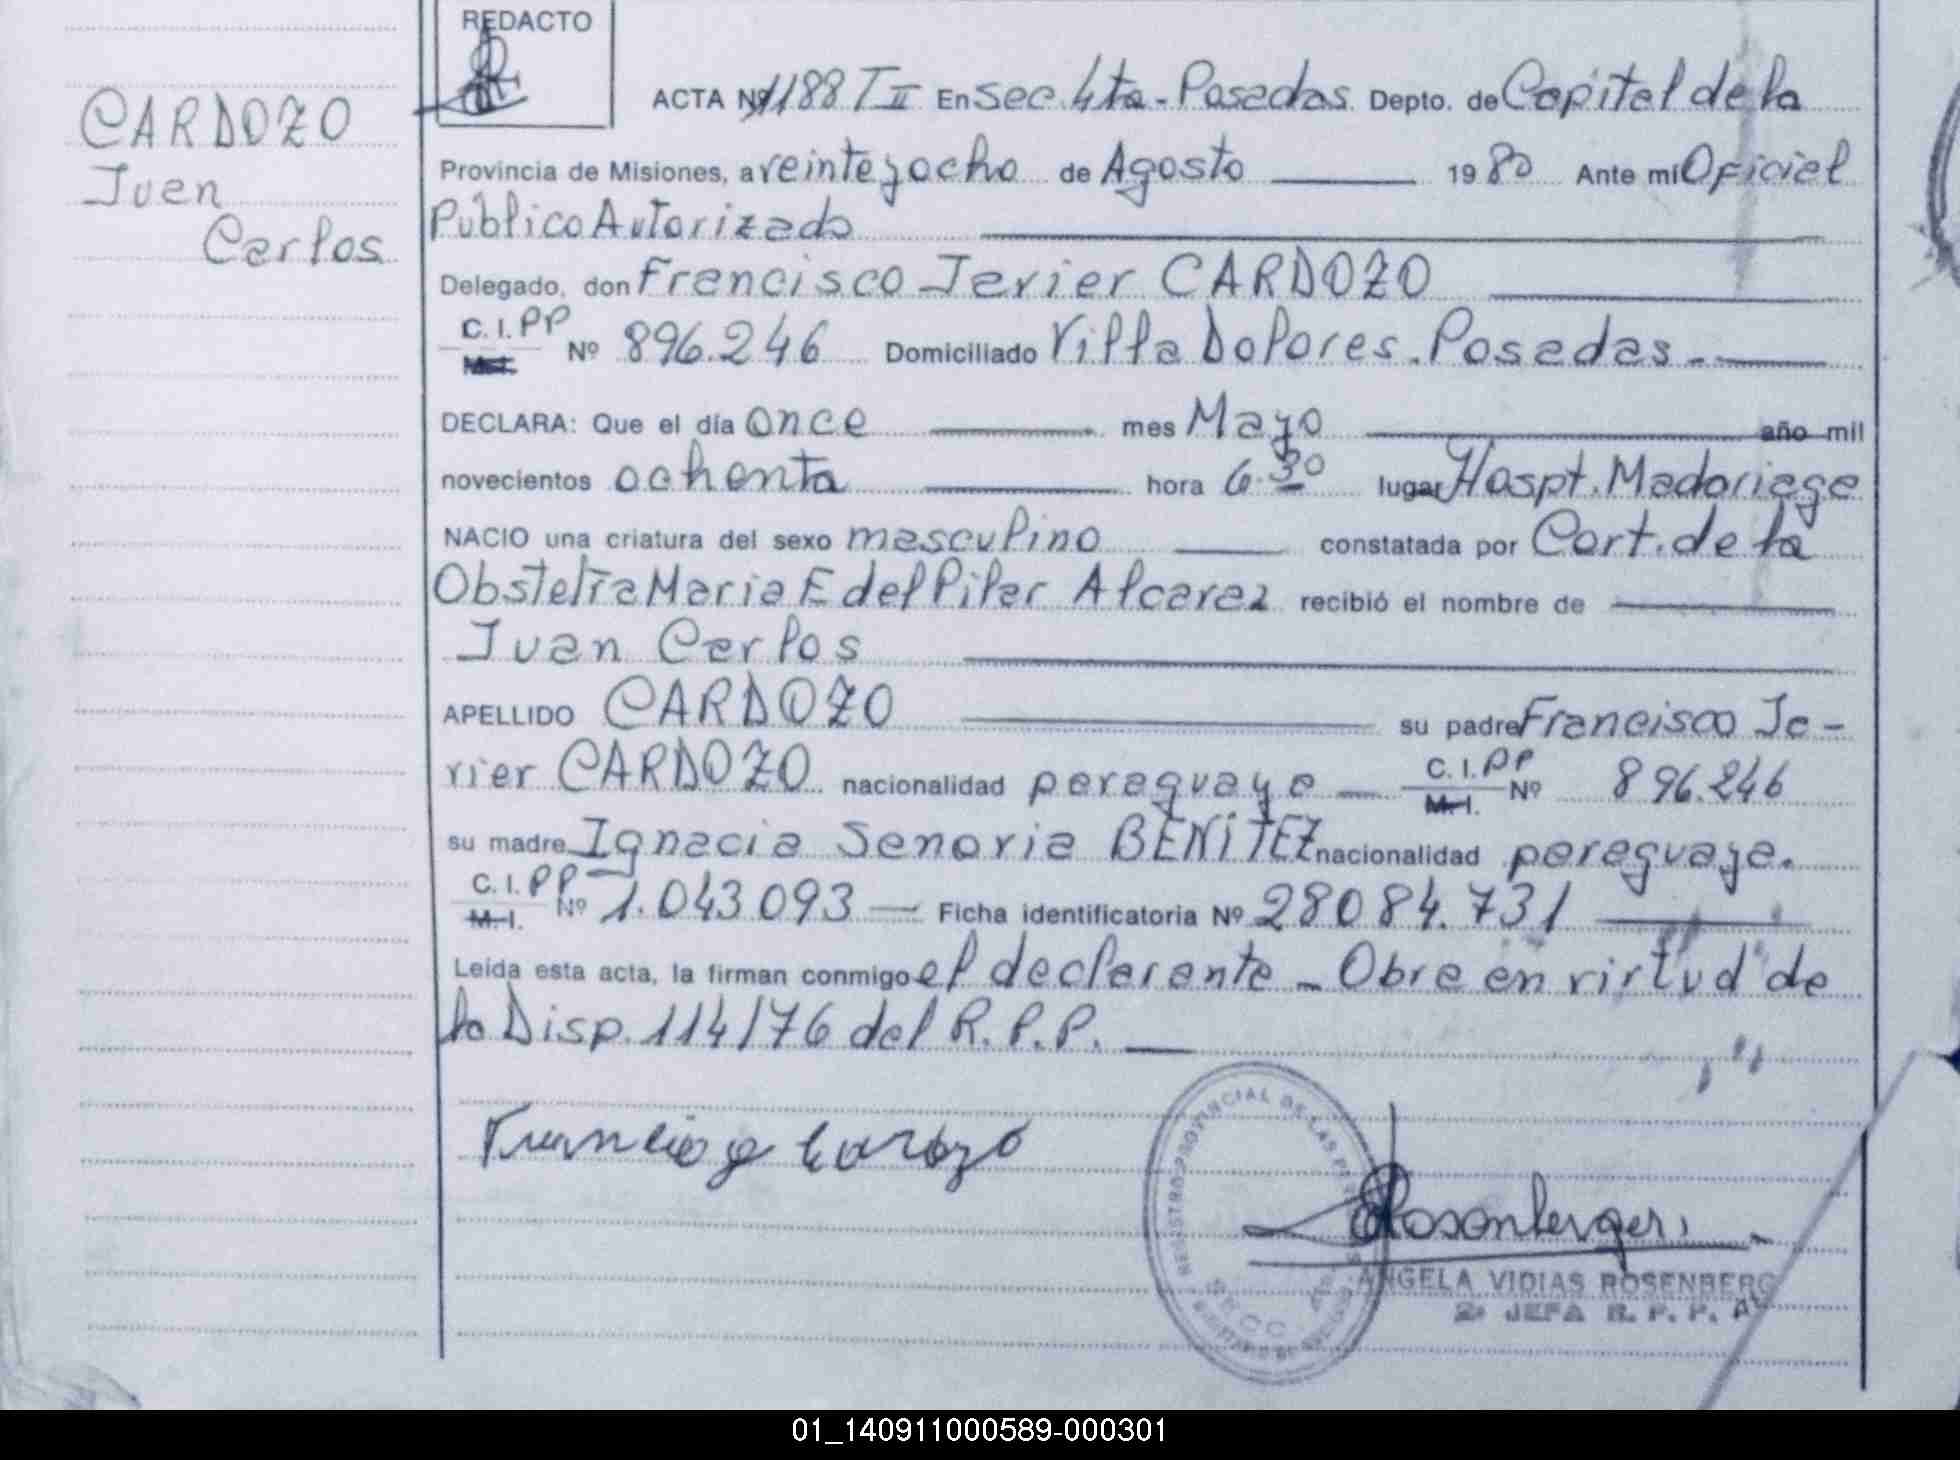 REDACTO
CARDOZO
Juan
Carlos
ACTA Nº 1188 T II En Sec. 4ta - Posadas Depto. de Capital de la
Provincia de Misiones, a veinte y ocho de Agosto 19 80 Ante mí Oficial
Publico Autorizado
Delegado, don Francisco Javier CARDOZO
C. I. PP
M.I. Nº 896.246 Domiciliado Villa Dolores. Posadas -
DECLARA: Que el día once mes Mayo año mil
novecientos ochenta hora 6.30 lugar Hospt. Madariaga
NACIO una criatura del sexo masculino constatada por Cert. de la
Obstetra Maria E del Pilar Alcaraz recibió el nombre de
Juan Carlos
APELLIDO CARDOZO su padre Francisco Ja-
vier CARDOZO nacionalidad paraguaya C. I. PP M.I. Nº 896.246
su madre Ignacia Senoria BENITEZ nacionalidad paraguaya.
C. I. PP M.I. Nº 1.043.093 Ficha identificatoria Nº 28084.731
Leída esta acta, la firman conmigo el declarante - Obra en virtud de
la Disp. 114/76 del R.P.P.
REGISTRO PROVINCIAL DE LAS
Rosenberger
ANGELA VIDIAS ROSENBERG
2ª JEFA R. P. P.
01_140911000589-000301